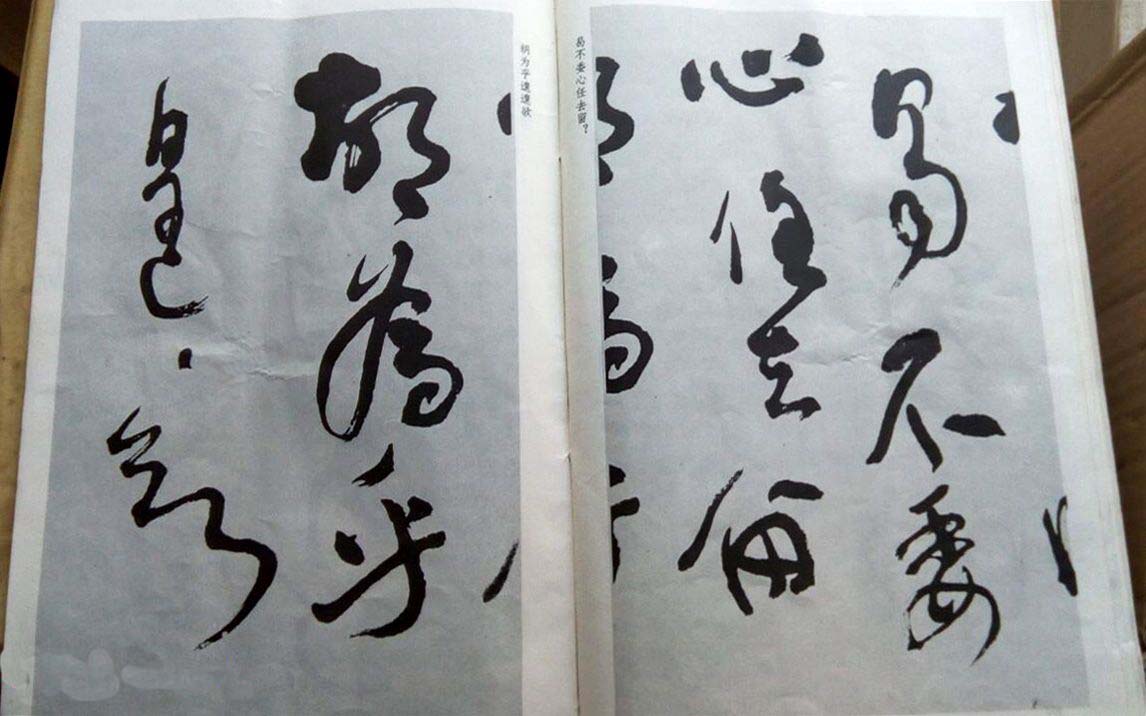 曷不委
心任去留
曷不委心任去留？
胡為乎
遑々欲
胡为乎遑遑欲